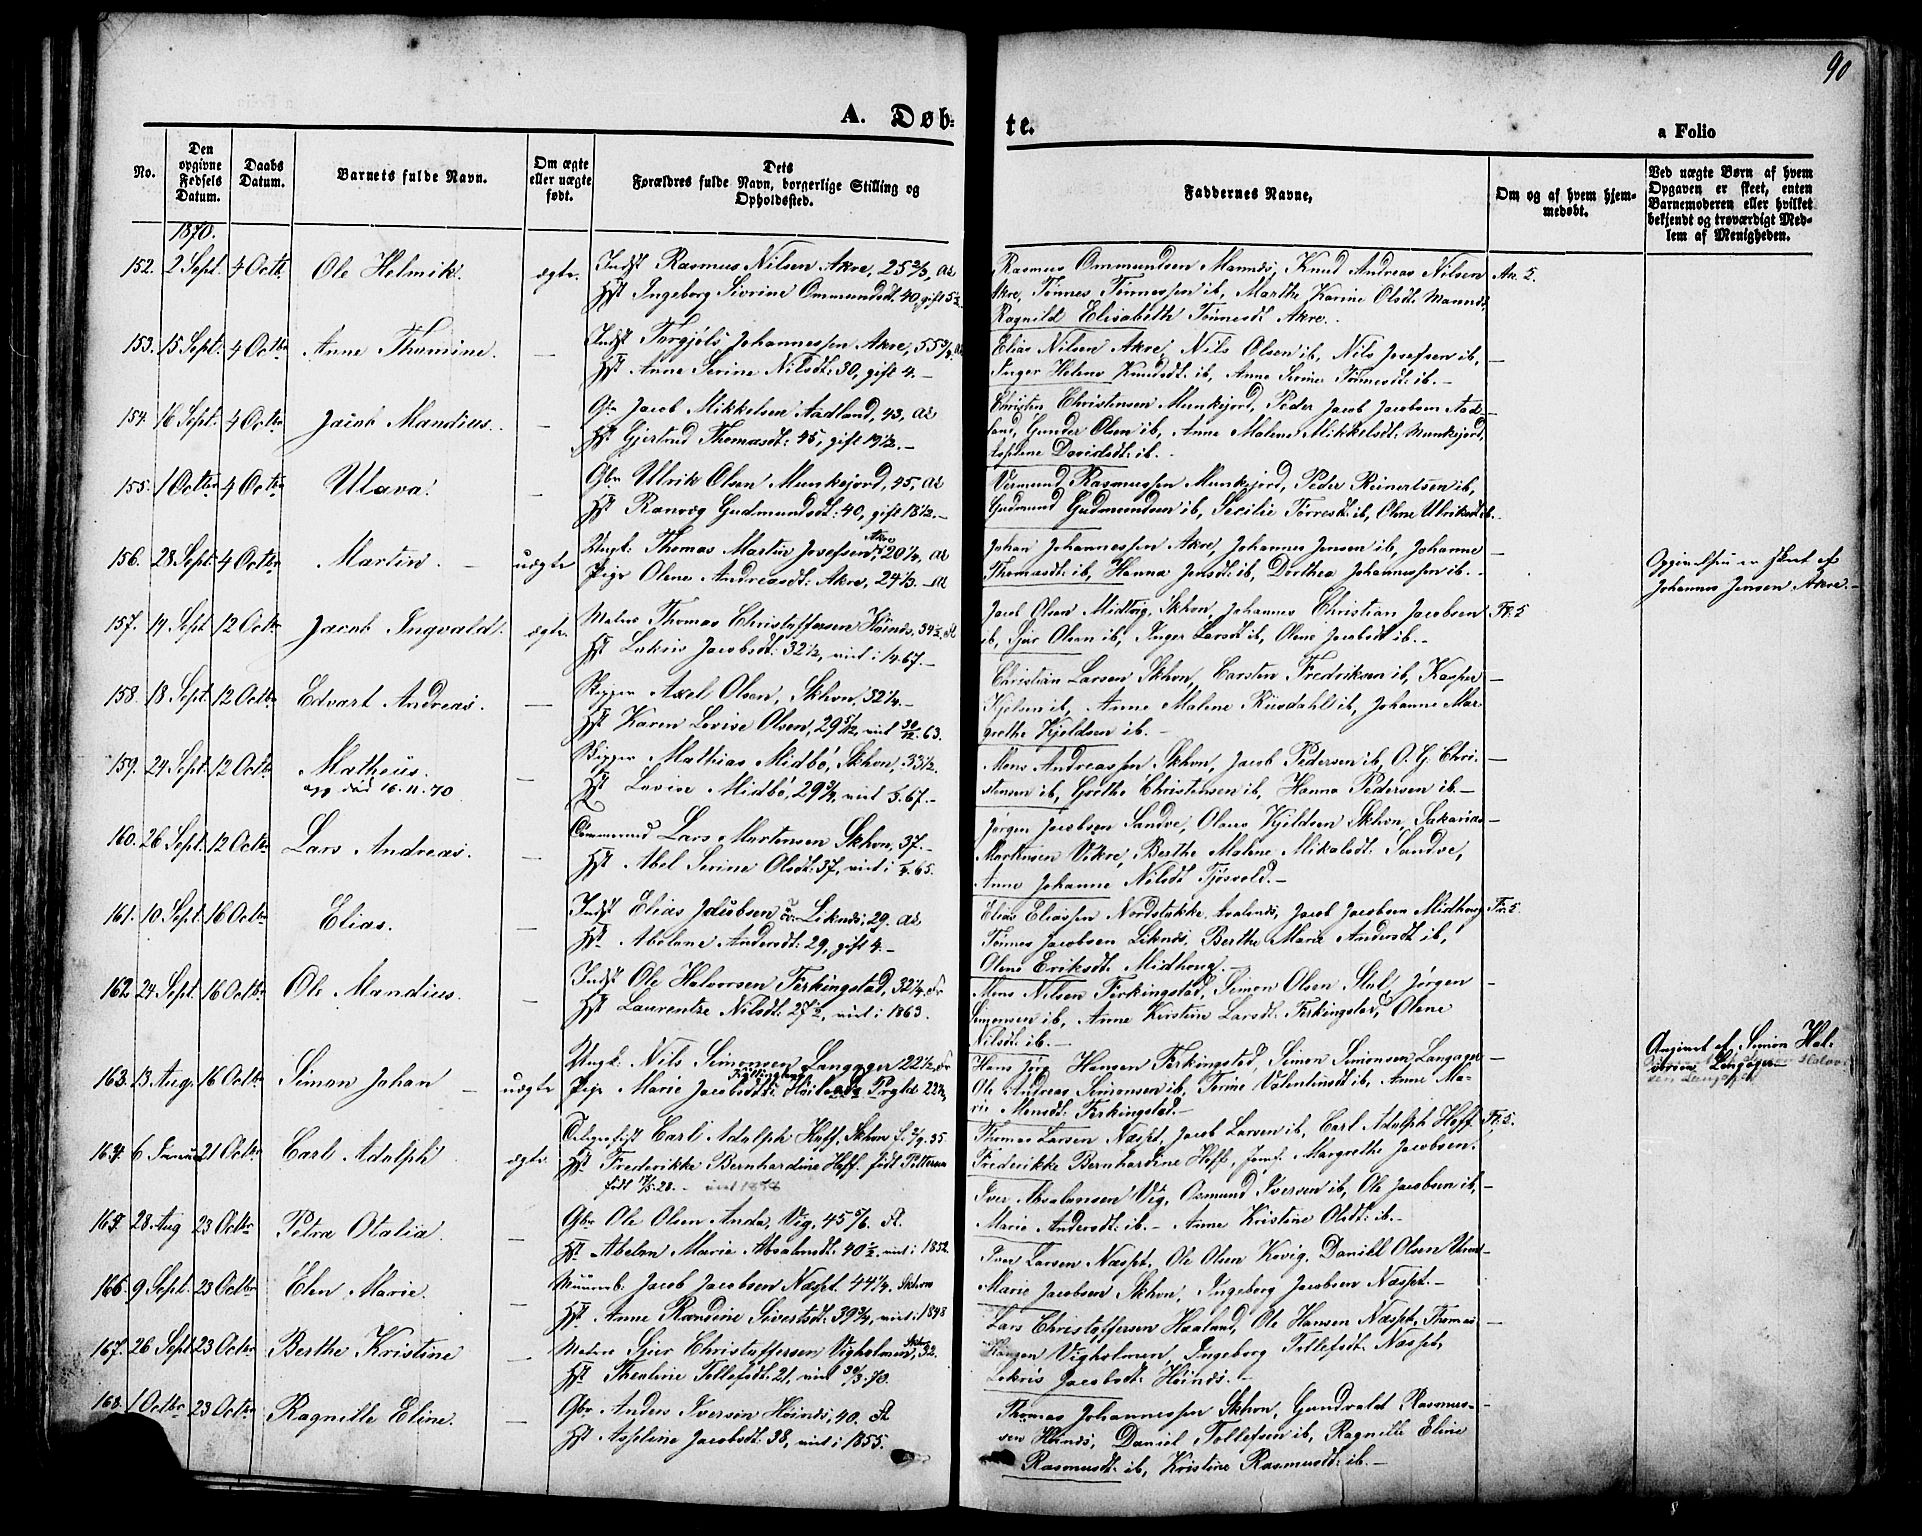 90
A. Døb-
te.
a Folio
No.
Den opgivne Fødsels Datum.
Daabs Datum.
Barnets fulde Navn.
Om ægte eller uægte født.
Dets Forældres fulde Navn, borgerlige Stilling og Opholdssted.
Faddernes Navne,
Om og af hvem hjemmedøbt.
Ved uægte Børn af hvem Opgaven er skeet, enten Barnemoderen eller hvilket bekjendt og troværdigt Medlem af Menigheden.
1870.
152. 2 Sept. 4 Octb. Ole Helmik. ægte. Indst Rasmus Nilsen Akre, 25 2/3,
Hst Ingeborg Sivrine Ommundsdt. 40, gift 5 1/2
Rasmus Ommundsen Mannes, Knud Andreas Nilsen
Akre, Tønnes Tønnessen ib, Marthe Karine Olsdt. Mannes,
Ragnild Elisabeth Tønnesdt Akre.
153. 15 Sept. 4 Octbr Anne Thomine. — Indst Torgjols Johannessen Akre,
Hst Anne Serine Nilsdt: 30, gift 4.—
Elias Nilsen Akre, Nils Olsen ib, Nils Josefsen ib, —
Inger Helene Knudsdt. ib, Anne Serine Tønnesdt. ib.—
154. 16 Sept. 4 Octbr Jacob Mandius. — Gbr Jacob Mikkelsen Aadland, 43,
Hst Gjertrud Thomasdt: 45, gift 19 1/2.—
Christen Christensen Munkejord, Peder Jacob Jacobsen Aad-
land, Gunder Olsen ib, Anne Malene Mikkelsdt. Munkejord,
Davidsdt: ib.
155. 1 Octbr 4 Octbr Ulava. — Gbr Ulrik Olsen Munkejord, 45,
Hst Ranveg Gudmundsdt: 40, gift 18 1/2.—
Vermund Rasmussen Munkejord, Peder Reinertsen ib,
Gudmund Gudmundsen ib, Secilie Torresdt. ib, Olene Ulriksdt ib.
156. 28 Sept. 4 Octbr Martin. — uægte Ungk. Thomas Martin Josefsen Akre, 20 1/4,
Pige Olene Andreasdt: Akre, 24 1/3.
Johan Johannessen Akre, Johannes Jensen ib, Johanne —
Thomasdt: ib, Hanna Jensdt: ib, Dorthea Johannessen ib.
Opgivelsen er skeet af
Johannes Jensen Akre.—
157. 14 Sept 12 Octbr Jacob Ingvald. ægte. Thomas Christoffersen Høines, 34 1/2.
Hst Lukris Jacobsdt: 32 1/2, viet i 67.—
Jacob Olsen Midtvig, Skhvn, Johannes Christian Jacobsen
ib, Sjur Olsen ib, Inger Larsdt ib, Olene Jacobsdt ib.—
158. 18 Sept. 12 Octbr Edvart Andreas. — Skipper Axel Olsen, Skhvn, 32 1/4.—
Hst Karen Lovise Olsen, 29 5/12, viet 30/12 63.
Christian Larsen Skhvn, Carsten Fredriksen ib, Kasper —
Kjelsen ib, Anne Malene Riisdahl ib, Johanne Mar-
grethe Kjeldsen ib.—
159. 24 Sept. 12 Octbr Matheus. — Skipper Mathias Midbø, Skhvn, 33 1/2.
opg død 16.11.70
Hst Lovise Midbø, 29 3/4, viet 67.—
Mons Andreassen Skhvn, Jacob Pedersen ib, O. G. Chri- —
stensen ib, Grethe Christensen ib, Hanna Pedersen ib.—
160. 26 Sept. 12 Octbr Lars Andreas. — Lars Mortensen Skhvn, 37.—
Hst Abel Serine Olsdt: 37, viet i 65.
Jørgen Jacobsen Sandve, Olaus Kjeldsen Skhvn, Sakarias —
Markusen Vikre, Berthe Malene Mikalsdt. Sandve,
Anne Johanne Nilsdt Tjøsvold.—
161. 10 Sept. 16 Octbr Elias. — Indst Elias Jacobsen Liknes, 29.
Hst Abelone Andersdt: 29, gift 4.—
Elias Eliassen Nordstokke, Jacob Jacobsen Midhoug
Tønnes Jacobsen Liknes, Berthe Marie Andersdt ib,
Olene Eriksdt. Midhoug.
162 24 Sept. 16 Octbr Ole Mandius. — Indst Ole Halvorsen Ferkingstad, 32 1/4.
Hst Laurentze Nilsdt: 27 1/2, viet i 1863.
Mons Nilsen Ferkingstad, Simon Olsen Stol, Jørgen —
Simonsen ib, Anne Kirstine Larsdt. Ferkingstad, Olene
Nilsdt: ib.—
163. 13 Aug. 16 Octbr Simon Johan — uægte Ungk. Nils Simonsen Langager 22 1/2,
Pige Marie Jacobsdt: 22 1/4,
Hans Jørg. Hansen Ferkingstad, Simon Simonsen Langager —
Ole Andreas Simonsen ib, Torine Valentinsdt ib, Anne Ma-
rie Monsdt: Ferkingstad.—
Angivet af Simon Hal-
vorsen Langager—
164. 6 21 Octbr Carl Adolph. ægte. Telegrafist Carl Adolph Hoff, Skhvn f. 35
Hst Frederikke Bernhardine Hoff. født Pettersen
født 28.—
Thomas Larsen Næsset, Jacob Larsen ib, Carl Adolph Hoff
Frederikke Bernhardine Hoff, Jomf. Margrethe Jacobsen.
165. 28 Aug 23 Octbr Petra Otalia. — Gbr Ole Olsen Anda, Vig, 45 5/6.
Hst Abelon Marie Absalonsdt. 40 1/2. viet i 1852.
Iver Absalonsen Vig, Osmund Iversen ib, Ole Jacobsen ib, —
Marie Andersdt: ib.— Anne Kristine Olsdt: ib.—
166. 9 Sept. 23 Octbr Elen Marie. — Muurmb. Jacob Jacobsen Næsset 44 1/4, Skhvn
Hst. Anne Randine Sivertsdt: 39 3/4, viet i 1848
Iver Larsen Næsset. Ole Olsen Kovig. Daniel Olsen
Marie Jacobsen Skhvn, Ingeborg Jacobsen Næsset.—
167. 26 Sept 23 Octbr Berthe Kristine — Sjur Christoffersen Vigholmen, 32.
Hst. Thealine Tollefsdt. 21, viet 70.
Lars Christoffersen Haaland, Ole Hansen Næsset, Thomas —
Vigholmen, Ingeborg Tollefsdt. Næsset,
Lukris Jacobsdt: Høines.—
168. 1 Octbr 23 Octbr Ragnille Eline. — Gbr Anders Iversen Høines, 40.
Hst. Asseline Jacobsdt: 38, viet i 1855.
Thomas Johannessen Skhvn, Gundvald Rasmus- —
sen Høines, Daniel Tollefsen ib, Ragnille Eline
Rasmusdt: ib, Kristine Rasmusdt: ib.—